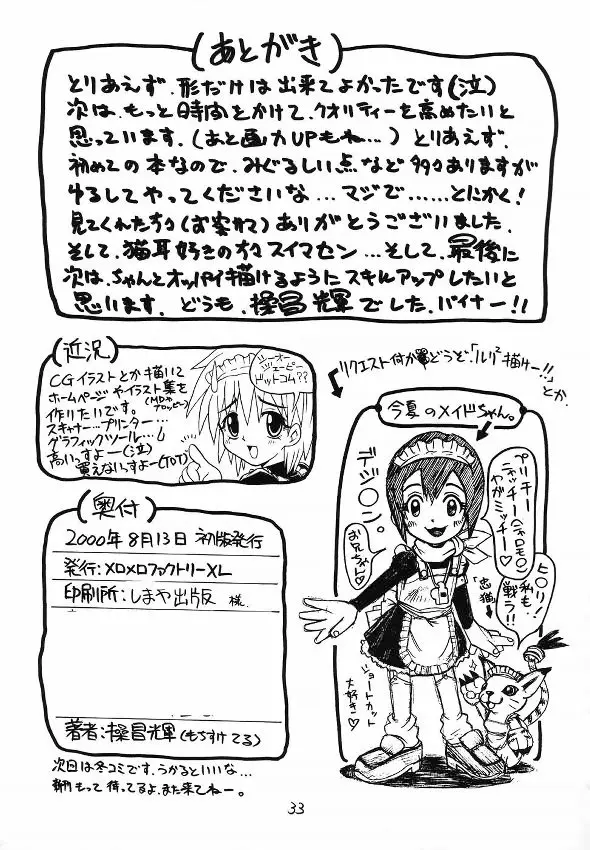 (あとがき)
とりあえず、形だけは出来てよかったです(泣)
次は、もっと時間をかけて、クオリティーを高めたいと
思っています。(あと画力UPもね…)とりあえず、
初めての本なので、みぐるしい点など多々ありますが
ゆるしてやってくださいな…マジで……とにかく!
見てくれた方々(お客かて)ありがとうございました。
そして、猫耳好きの方々スイマセン…そして、最後に
次は、ちゃんとオッパイ描けるようにスキルアップしたいと
思います。どうも、操昌輝でした。バイナー!!
(近況)
CGイラストとか描いて
ホームページやイラスト集を
(MDやフロッピー)
作りたいです。
スキャナー…プリンター…
グラフィックツール…
高いっすよー(泣)
買えないっすよー(T0T)
ジーオー
ジェーピー
ドットコム??
リクエスト何か畧どうぞ、「ルリ²描けー!!」
とか、
今夏のメイドちゃん。
デジ〇ン。
プリキー
ニャッチー(ニャロモ)
やがミッチー♡
お兄ちゃん♡
ヒ〇リ!
私も
戦う!!
「忠猫」
ショートカット
大好き♡
(奥付)
2000年8月13日 初版発行
発行:メロメロファクトリーXL
印刷所:しまや出版 様
著者:操昌輝(もちすけてる)
次回は冬コミです、うかるといいな…
新刊もって待ってるよ、また来てねー。
33